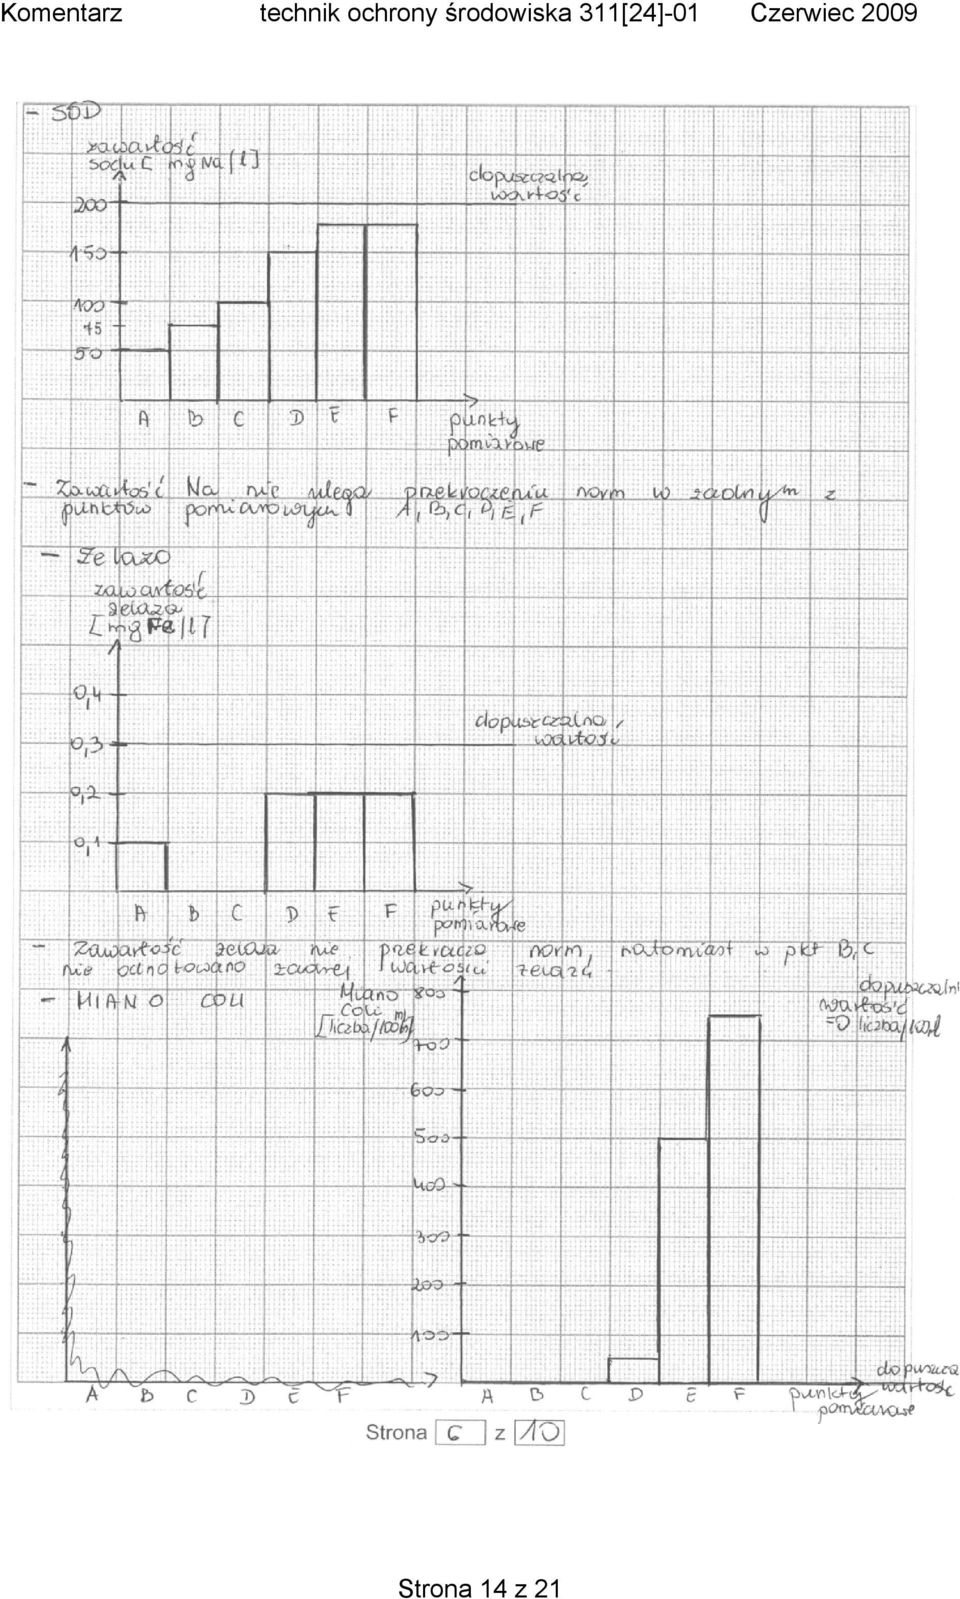 Komentarz technik ochrony środowiska 311[24]-01 Czerwiec 2009
- SÓD
zawartość
sodu [ mg Na/l]
dopuszczalna
wartość
200
150
100
75
50
A B C D E F punkty
pomiarowe
- Zawartość Na nie ulega przekroczeniu norm w żadnym z
punktów pomiarowych A, B, C, D, E, F
- Żelazo
zawartość
żelaza
[mg Fe/l]
0,4
dopuszczalna
wartość
0,3
0,2
0,1
A B C D E F punkty
pomiarowe
- Zawartość żelaza nie przekracza norm, natomiast w pkt B, C
nie odnotowano żadnej wartości żelaza.
- MIANO COLI
Miano
Coli
[liczba/100ml]
dopuszczaln
wartość
=0 liczba/100ml
800
700
600
500
400
300
200
100
dopuszcza
wartość
A B C D E F
A B C D E F punkty
pomiarowe
Strona 6 z 10
Strona 14 z 21